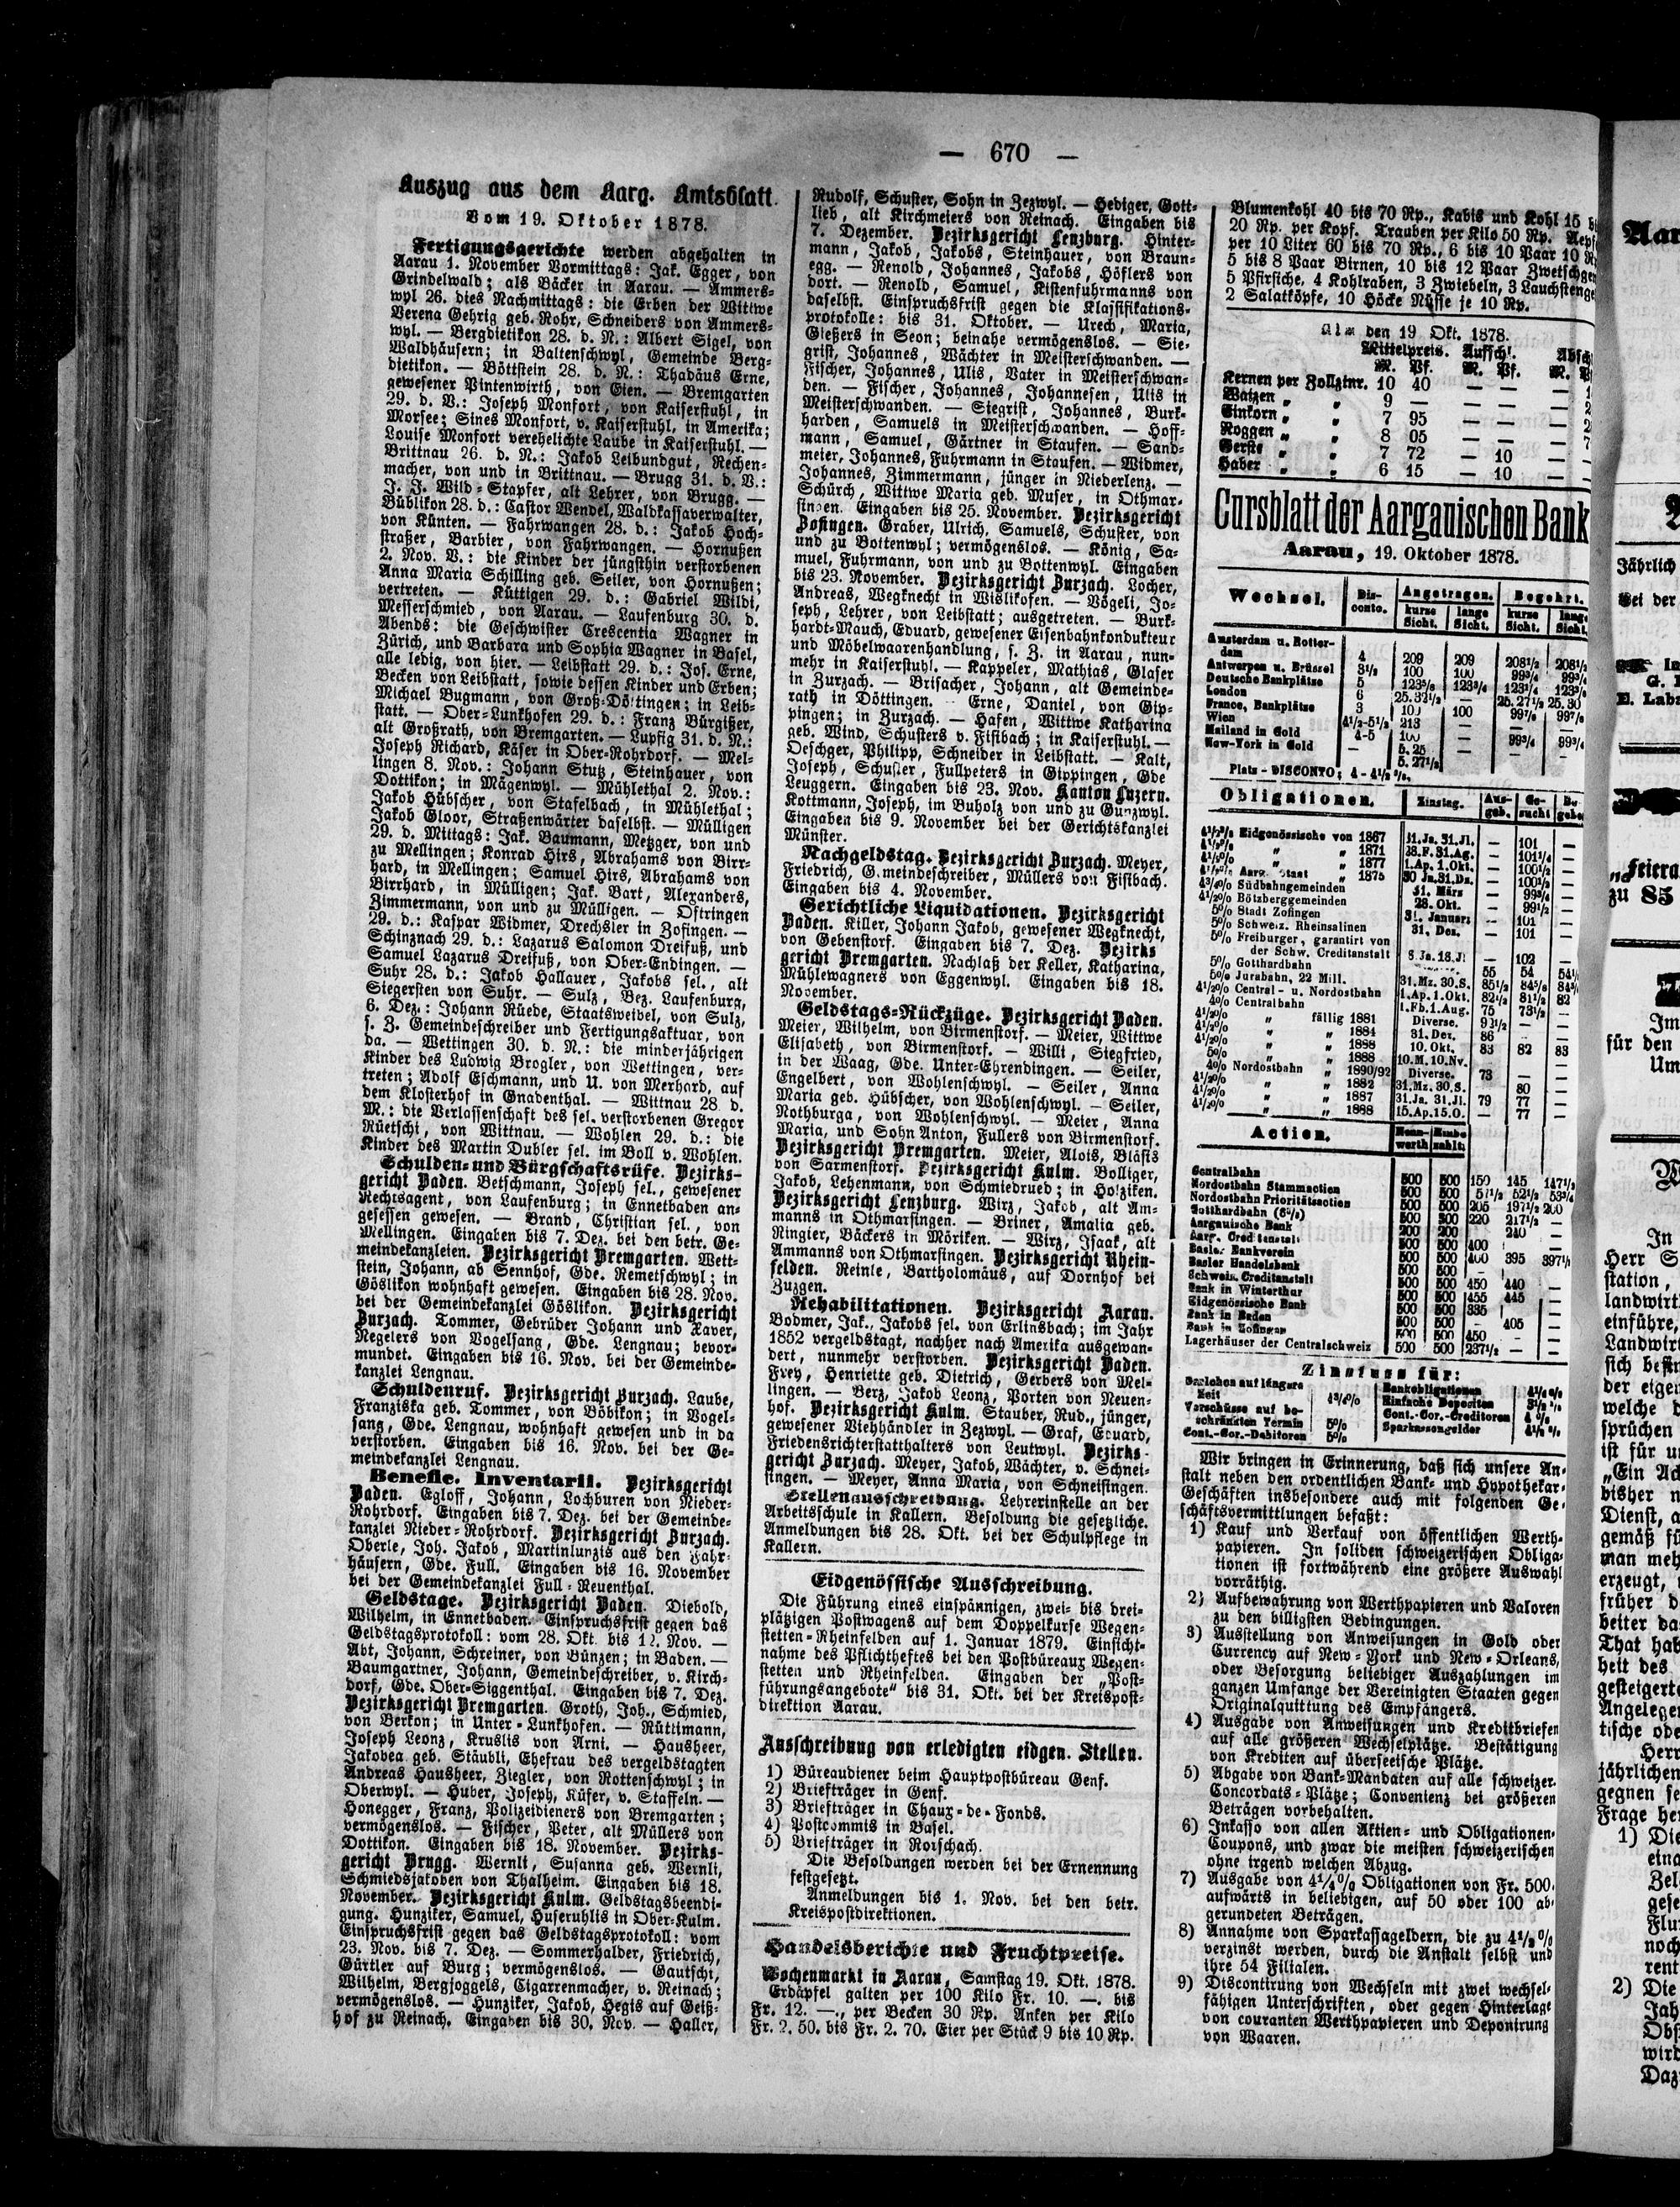 — 670 —
Auszug aus dem Aarg. Amtsblatt.
Vom 19. Oktober 1878.
Fertigungsgerichte werden abgehalten in
Aarau 1. November Vormittags: Jak. Egger, von
Grindelwald; als Bäcker in Aarau. — Ammers-
wyl 26. dies Nachmittags: die Erben der Wittwe
Verena Gehrig geb. Rohr, Schneiders von Ammers-
wyl. — Bergdietikon 28. d. N.: Albert Sigel, von
Waldhäusern; in Baltenschwyl, Gemeinde Berg-
dietikon. — Böttstein 28. d. N.: Thadäus Erne,
gewesener Pintenwirth, von Eien. — Bremgarten
29. d. V.: Joseph Monfort, von Kaiserstuhl, in
Morsee; Sines Monfort, v. Kaiserstuhl, in Amerika;
Louise Monfort verehelichte Laube in Kaiserstuhl. —
Brittnau 26. d. N.: Jakob Leibundgut, Rechen-
macher, von und in Brittnau. — Brugg 31. d. V.:
J. J. Wild-Stapfer, alt Lehrer, von Brugg. —
Büblikon 28. d.: Castor Wendel, Waldkassaverwalter,
von Künten. — Fahrwangen 28. d.: Jakob Hoch-
straßer, Barbier, von Fahrwangen. — Hornußen
2. Nov. V.: die Kinder der jüngsthin verstorbenen
Anna Maria Schilling geb. Seiler, von Hornußen;
vertreten. — Küttigen 29. d.: Gabriel Wildi,
Messerschmied, von Aarau. — Laufenburg 30. d.
Abends: die Geschwister Crescentia Wagner in
Zürich, und Barbara und Sophia Wagner in Basel,
alle ledig, von hier. — Leibstatt 29. d.: Jos. Erne,
Becken von Leibstatt, sowie dessen Kinder und Erben;
Michael Bugmann, von Groß-Döttingen; in Leib-
statt. — Ober-Lunkhofen 29. d.: Franz Bürgißer,
alt Großrath, von Bremgarten. — Lupfig 31. d. N.:
Joseph Richard, Käser in Ober-Rohrdorf. — Mel-
lingen 8. Nov.: Johann Stutz, Steinhauer, von
Dottikon; in Mägenwyl. — Mühlethal 2. Nov.:
Jakob Hübscher, von Stafelbach, in Mühlethal;
Jakob Gloor, Straßenwärter daselbst. — Mülligen
29. d. Mittags: Jak. Baumann, Metzger, von und
zu Mellingen; Konrad Hirs, Abrahams von Birr-
hard, in Mellingen; Samuel Hirs, Abrahams von
Birrhard, in Mülligen; Jak. Bart, Alexanders,
Zimmermann, von und zu Mülligen. — Oftringen
29. d.: Kaspar Widmer, Drechsler in Zofingen. —
Schinznach 29. d.: Lazarus Salomon Dreifuß, und
Samuel Lazarus Dreifuß, von Ober-Endingen. —
Suhr 28. d.: Jakob Hallauer, Jakobs sel., alt
Siegersten von Suhr. — Sulz, Bez. Laufenburg,
6. Dez.: Johann Rüede, Staatsweibel, von Sulz,
s. Z. Gemeindeschreiber und Fertigungsaktuar, von
da. — Wettingen 30. d. N.: die minderjährigen
Kinder des Ludwig Brogler, von Wettingen, ver-
treten; Adolf Eschmann, und U. von Merhard, auf
dem Klosterhof in Gnadenthal. — Wittnau 28. d.
M.: die Verlassenschaft des sel. verstorbenen Gregor
Rüetschi, von Wittnau. — Wohlen 29. d.: die
Kinder des Martin Dubler sel. im Boll v. Wohlen.
Schulden- und Bürgschaftsrüfe. Bezirks-
gericht Baden. Betschmann, Joseph sel., gewesener
Rechtsagent, von Laufenburg; in Ennetbaden an-
gesessen gewesen. — Brand, Christian sel., von
Mellingen. Eingaben bis 7. Dez. bei den betr. Ge-
meindekanzleien. Bezirksgericht Bremgarten. Wett-
stein, Johann, ab Sennhof, Gde. Remetschwyl; in
Göslikon wohnhaft gewesen. Eingaben bis 28. Nov.
bei der Gemeindekanzlei Göslikon. Bezirksgericht
Zurzach. Tommer, Gebrüder Johann und Xaver,
Regelers von Vogelsang, Gde. Lengnau; bevor-
mundet. Eingaben bis 16. Nov. bei der Gemeinde-
kanzlei Lengnau.
Schuldenruf. Bezirksgericht Zurzach. Laube,
Franziska geb. Tommer, von Böbikon; in Vogel-
sang, Gde. Lengnau, wohnhaft gewesen und in da
verstorben. Eingaben bis 16. Nov. bei der Ge-
meindekanzlei Lengnau.
Benefic. Inventarii. Bezirksgericht
Baden. Egloff, Johann, Lochburen von Nieder-
Rohrdorf. Eingaben bis 7. Dez. bei der Gemeinde-
kanzlei Nieder-Rohrdorf. Bezirksgericht Zurzach.
Oberle, Joh. Jakob, Martinlunzis aus den Fahr-
häusern, Gde. Full. Eingaben bis 16. November
bei der Gemeindekanzlei Full-Reuenthal.
Geldstage. Bezirksgericht Baden. Diebold,
Wilhelm, in Ennetbaden. Einspruchsfrist gegen das
Geldstagsprotokoll: vom 28. Okt. bis 12. Nov. —
Abt, Johann, Schreiner, von Bünzen; in Baden. —
Baumgartner, Johann, Gemeindeschreiber, v. Kirch-
dorf, Gde. Ober-Siggenthal. Eingaben bis 7. Dez.
Bezirksgericht Bremgarten. Groth, Joh., Schmied,
von Berkon; in Unter-Lunkhofen. — Rüttimann,
Joseph Leonz, Kruslis von Arni. — Hausheer,
Jakobea geb. Stäubli, Ehefrau des vergeldstagten
Andreas Hausheer, Ziegler, von Rottenschwyl; in
Oberwyl. — Huber, Joseph, Küfer, v. Staffeln. —
Honegger, Franz, Polizeidieners von Bremgarten;
vermögenslos. — Fischer, Peter, alt Müllers von
Dottikon. Eingaben bis 18. November. Bezirks-
gericht Brugg. Wernli, Susanna geb. Wernli,
Schmiedsjakoben von Thalheim. Eingaben bis 18.
November. Bezirksgericht Kulm. Geldstagsbeendi-
gung. Hunziker, Samuel, Huferuhlis in Ober-Kulm.
Einspruchsfrist gegen das Geldstagsprotokoll: vom
23. Nov. bis 7. Dez. — Sommerhalder, Friedrich,
Gürtler auf Burg; vermögenslos. — Gautschi,
Wilhelm, Bergjoggels, Cigarrenmacher, v. Reinach;
vermögenslos. — Hunziker, Jakob, Hegis auf Geiß-
hof zu Reinach. Eingaben bis 30. Nov. — Haller,
Rudolf, Schuster, Sohn in Zezwyl. — Hediger, Gott-
lieb, alt Kirchmeiers von Reinach. Eingaben bis
7. Dezember. Bezirksgericht Lenzburg. Hinter-
mann, Jakob, Jakobs, Steinhauer, von Braun-
egg. — Renold, Johannes, Jakobs, Höflers von
dort. — Renold, Samuel, Kistenfuhrmanns von
daselbst. Einspruchsfrist gegen die Klassifikations-
protokolle: bis 31. Oktober. — Urech, Maria,
Gießers in Seon; beinahe vermögenslos. — Sie-
grist, Johannes, Wächter in Meisterschwanden. —
Fischer, Johannes, Ulis, Vater in Meisterschwan-
den. — Fischer, Johannes, Johannesen, Ulis in
Meisterschwanden. — Siegrist, Johannes, Burk-
harden, Samuels in Meisterschwanden. — Hoff-
mann, Samuel, Gärtner in Staufen. — Sand-
meier, Johannes, Fuhrmann in Staufen. — Widmer,
Johannes, Zimmermann, jünger in Niederlenz. —
Schürch, Wittwe Maria geb. Muser, in Othmar-
singen. Eingaben bis 25. November. Bezirksgericht
Zofingen. Graber, Ulrich, Samuels, Schuster, von
und zu Bottenwyl; vermögenslos. — König, Sa-
muel, Fuhrmann, von und zu Bottenwyl. Eingaben
bis 23. November. Bezirksgericht Zurzach. Locher,
Andreas, Wegknecht in Wislikofen. — Vögeli, Jo-
seph, Lehrer, von Leibstatt; ausgetreten. — Burk-
hardt-Mauch, Eduard, gewesener Eisenbahnkondukteur
und Möbelwaarenhandlung, s. Z. in Aarau, nun-
mehr in Kaiserstuhl. — Kappeler, Mathias, Glaser
in Zurzach. — Brisacher, Johann, alt Gemeinde-
rath in Döttingen. Erne, Daniel, von Gip-
pingen; in Zurzach. — Hafen, Wittwe Katharina
geb. Wind, Schusters v. Fisibach; in Kaiserstuhl. —
Oeschger, Philipp, Schneider in Leibstatt. — Kalt,
Joseph, Schuster, Fullpeters in Gippingen, Gde
Leuggern. Eingaben bis 23. Nov. Kanton Luzern.
Kottmann, Joseph, im Buholz von und zu Gunzwyl.
Eingaben bis 9. November bei der Gerichtskanzlei
Münster.
Nachgeldstag. Bezirksgericht Zurzach. Meyer,
Friedrich, Gemeindeschreiber, Müllers von Fisibach.
Eingaben bis 4. November.
Gerichtliche Liquidationen. Bezirksgericht
Baden. Killer, Johann Jakob, gewesener Wegknecht,
von Gebenstorf. Eingaben bis 7. Dez. Bezirks
gericht Bremgarten. Nachlaß der Keller, Katharina,
Mühlewagners von Eggenwyl. Eingaben bis 18.
November.
Geldstags-Rückzüge. Bezirksgericht Baden.
Meier, Wilhelm, von Birmenstorf. — Meier, Wittwe
Elisabeth, von Birmenstorf. — Willi, Siegfried,
in der Waag, Gde. Unter-Ehrendingen. — Seiler,
Engelbert, von Wohlenschwyl. — Seiler, Anna
Maria geb. Hübscher, von Wohlenschwyl. — Seiler,
Nothburga, von Wohlenschwyl. — Meier, Anna
Maria, und Sohn Anton, Fullers von Birmenstorf.
Bezirksgericht Bremgarten. Meier, Alois, Bläsis
von Sarmenstorf. Bezirksgericht Kulm. Bolliger,
Jakob, Lehenmann, von Schmiedrued; in Holziken.
Bezirksgericht Lenzburg. Wirz, Jakob, alt Am-
manns in Othmarsingen. — Briner, Amalia geb.
Ringier, Bäckers in Möriken. — Wirz, Isaak, alt
Ammanns von Othmarsingen. Bezirksgericht Rhein-
felden. Reinle, Bartholomäus, auf Dornhof bei
Zuzgen.
Rehabilitationen. Bezirksgericht Aarau.
Bodmer, Jak., Jakobs sel. von Erlinsbach; im Jahr
1852 vergeldstagt, nachher nach Amerika ausgewan-
dert, nunmehr verstorben. Bezirksgericht Baden.
Frey, Henriette geb. Dietrich, Gerbers von Mel-
lingen. — Berz, Jakob Leonz, Porten von Neuen-
hof. Bezirksgericht Kulm. Stauber, Rud., jünger,
gewesener Viehhändler in Zezwyl. — Graf, Eduard,
Friedensrichterstatthalters von Leutwyl. Bezirks-
gericht Zurzach. Meyer, Jakob, Wächter, v. Schnei-
singen. — Meyer, Anna Maria, von Schneisingen.
Stellenausschreibung. Lehrerinstelle an der
Arbeitsschule in Kallern. Besoldung die gesetzliche.
Anmeldungen bis 28. Okt. bei der Schulpflege in
Kallern.
Eidgenössische Ausschreibung.
Die Führung eines einspännigen, zwei- bis drei-
plätzigen Postwagens auf dem Doppelkurse Wegen-
stetten-Rheinfelden auf 1. Januar 1879. Einsicht-
nahme des Pflichtheftes bei den Postbüreaux Wegen-
stetten und Rheinfelden. Eingaben der „Post-
führungsangebote“ bis 31. Okt. bei der Kreispost-
direktion Aarau.
Ausschreibung von erledigten eidgen. Stellen.
1) Büreaudiener beim Hauptpostbüreau Genf.
2) Briefträger in Genf.
3) Briefträger in Chaux-de-Fonds.
4) Postcommis in Basel.
5) Briefträger in Rorschach.
Die Besoldungen werden bei der Ernennung
festgesetzt.
Anmeldungen bis 1. Nov. bei den betr.
Kreispostdirektionen.
Handelsberichte und Fruchtpreise.
Wochenmarkt in Aarau, Samstag 19. Okt. 1878.
Erdäpfel galten per 100 Kilo Fr. 10. —. bis
Fr. 12. —., per Becken 30 Rp. Anken per Kilo
Fr. 2. 50. bis Fr. 2. 70. Eier per Stück 9 bis 10 Rp.
Blumenkohl 40 bis 70 Rp., Kabis und Kohl 15
20 Rp. per Kopf. Trauben per Kilo 50 Rp.
per 10 Liter 60 bis 70 Rp., 6 bis 10 Paar 10
5 bis 8 Paar Birnen, 10 bis 12 Paar Zwetschgen
5 Pfirsiche, 4 Kohlraben, 3 Zwiebeln, 3 Lauchstengel
2 Salatköpfe, 10 Höcke Nüsse je 10 Rp.
Ulm den 19 Okt. 1878.
Mittelpreis. Aufschl.
M. Pf. M. Pf. M.
Kernen per Zollztnr. 10 40 — — —
Waizen „ „ 9 — — — —
Einkorn „ „ 7 95 — — —
Roggen „ „ 8 05 — — —
Gerste „ „ 7 72 — 10 —
Haber „ „ 6 15 — 10 —
Cursblatt der Aargauischen Bank
Aarau, 19. Oktober 1878.
Wechsel. Disconto. Angetragen. Begehrt.
kurze Sicht. lange Sicht. kurze Sicht. lange Sicht.
Amsterdam u. Rotter-
dam 4 209 209 208½ 208½
Antwerpen u. Brüssel 3½ 100 100 99¾ 99¾
Deutsche Bankplätze 5 123⅝ 123¾ 123¼
London 6 25.32½ — 25.27½ 25.30
France, Bankplätze 3 100 100 99⅞ 99⅞
Wien 4½-5½ 213 — — —
Mailand in Gold 4-5 100 — 99¾ 99¾
New-York in Gold — 5.25 — — —
5.27½
Platz-DISCONTO; 4-4½ %.
Obligationen. Zinstag. Ausgeb. Gesucht
4½% Eidgenössische von 1867 31.Ja. 31.Jl. — 101 —
4½% „ „ 1871 28.F. 31.Ag. — 101¼ —
4½% „ „ 1877 1.Ap. 1.Okt. — 100½ —
4½% Aarg. Staat „ 1875 30 Ja.31.Dz. — 100½ —
4¾% Südbahngemeinden 31. März — 99¾ —
4½% Bötzberggemeinden 28. Okt. — 99½ —
5% Stadt Zofingen 31. Januar — 101 —
5% Schweiz. Rheinsalinen 31. Dez. — 101 —
5% Freiburger, garantirt von
der Schw. Creditanstalt 8.Ja.18.Jl — 102 —
5% Gotthardbahn 55 54
5% Jurabahn, 22 Mill. 31.Mz. 30.S. 85½ 84⅝
4½% Central- u. Nordostbahn 1.Ap. 1.Okt. 82½ 81½ 82
4% Centralbahn 1.Fb.1.Aug. 75 73½ —
4½% „ fällig 1881 Diverse. 93½ — —
4½% „ „ 1884 31.Dez. 86 — —
4½% „ „ 1888 10.Okt. 83 82 83
5% „ „ 1888 10.M.10.Nv.
4% Nordostbahn „ 1890/92 Diverse. 73 — —
4½% „ „ 1882 31.Mz. 30.S. 80 —
4½% „ „ 1887 31.Ja. 31.Jl. 79 77 —
4½% „ „ 1888 15.Ap.15.O. — 77 —
Actien. Nennwerth Einbezahlt.
Centralbahn 500 500 150 145 147½
Nordostbahn Stammactien 500 500 57½ 52½ 53¾
Nordostbahn Prioritätsactien 500 500 205 197½ 200
Gotthardbahn (6%) 500 300 220 217½ —
Aargauische Bank 200 200 240 —
Aarg. Creditanstalt 500 500 400 —
Basler Bankverein 500 500 400 395 397½
Basler Handelsbank 500 500
Schweiz. Creditanstalt 500 500 450 440 —
Bank in Winterthur 500 500 455 445 —
Eidgenössische Bank 500 500 335 —
Bank in Baden 500 500 — 405 —
Bank in Zofingen 500 500 450 — —
Lagerhäuser der Centralschweiz 500 500 237½ — —
Zinsfuss für:
Darlehen auf längere
Zeit 4¾%
Vorschüsse auf be-
schränkten Termin 5%
Cont.-Cor.-Debitoren 5%
Bankobligationen 4¼ %
Einfache Depositen 3½ %
Cont.-Cor.-Creditoren 4 %
Sparkassengelder 4½ %
Wir bringen in Erinnerung, daß sich unsere An-
stalt neben den ordentlichen Bank- und Hypothekar-
Geschäften insbesondere auch mit folgenden Ge-
schäftsvermittlungen befaßt:
1) Kauf und Verkauf von öffentlichen Werth-
papieren. In soliden schweizerischen Obliga-
tionen ist fortwährend eine größere Auswahl
vorräthig.
2) Aufbewahrung von Werthpapieren und Valoren
zu den billigsten Bedingungen.
3) Ausstellung von Anweisungen in Gold oder
Currency auf New-York und New-Orleans,
oder Besorgung beliebiger Auszahlungen im
ganzen Umfange der Vereinigten Staaten gegen
Originalquittung des Empfängers.
4) Ausgabe von Anweisungen und Kreditbriefen
auf alle größeren Wechselplätze. Bestätigung
von Krediten auf überseeische Plätze.
5) Abgabe von Bank-Mandaten auf alle schweizer.
Concordats-Plätze; Convenienz bei größeren
Beträgen vorbehalten.
6) Inkasso von allen Aktien- und Obligationen-
Coupons, und zwar die meisten schweizerischen
ohne irgend welchen Abzug.
7) Ausgabe von 4¼% Obligationen von Fr. 500.
aufwärts in beliebigen, auf 50 oder 100 ab-
gerundeten Beträgen.
8) Annahme von Sparkassageldern, die zu 4½%
verzinst werden, durch die Anstalt selbst und
ihre 54 Filialen.
9) Discontirung von Wechseln mit zwei wechsel-
fähigen Unterschriften, oder gegen Hinterlage
von couranten Werthpapieren und Deponirung
von Waaren.